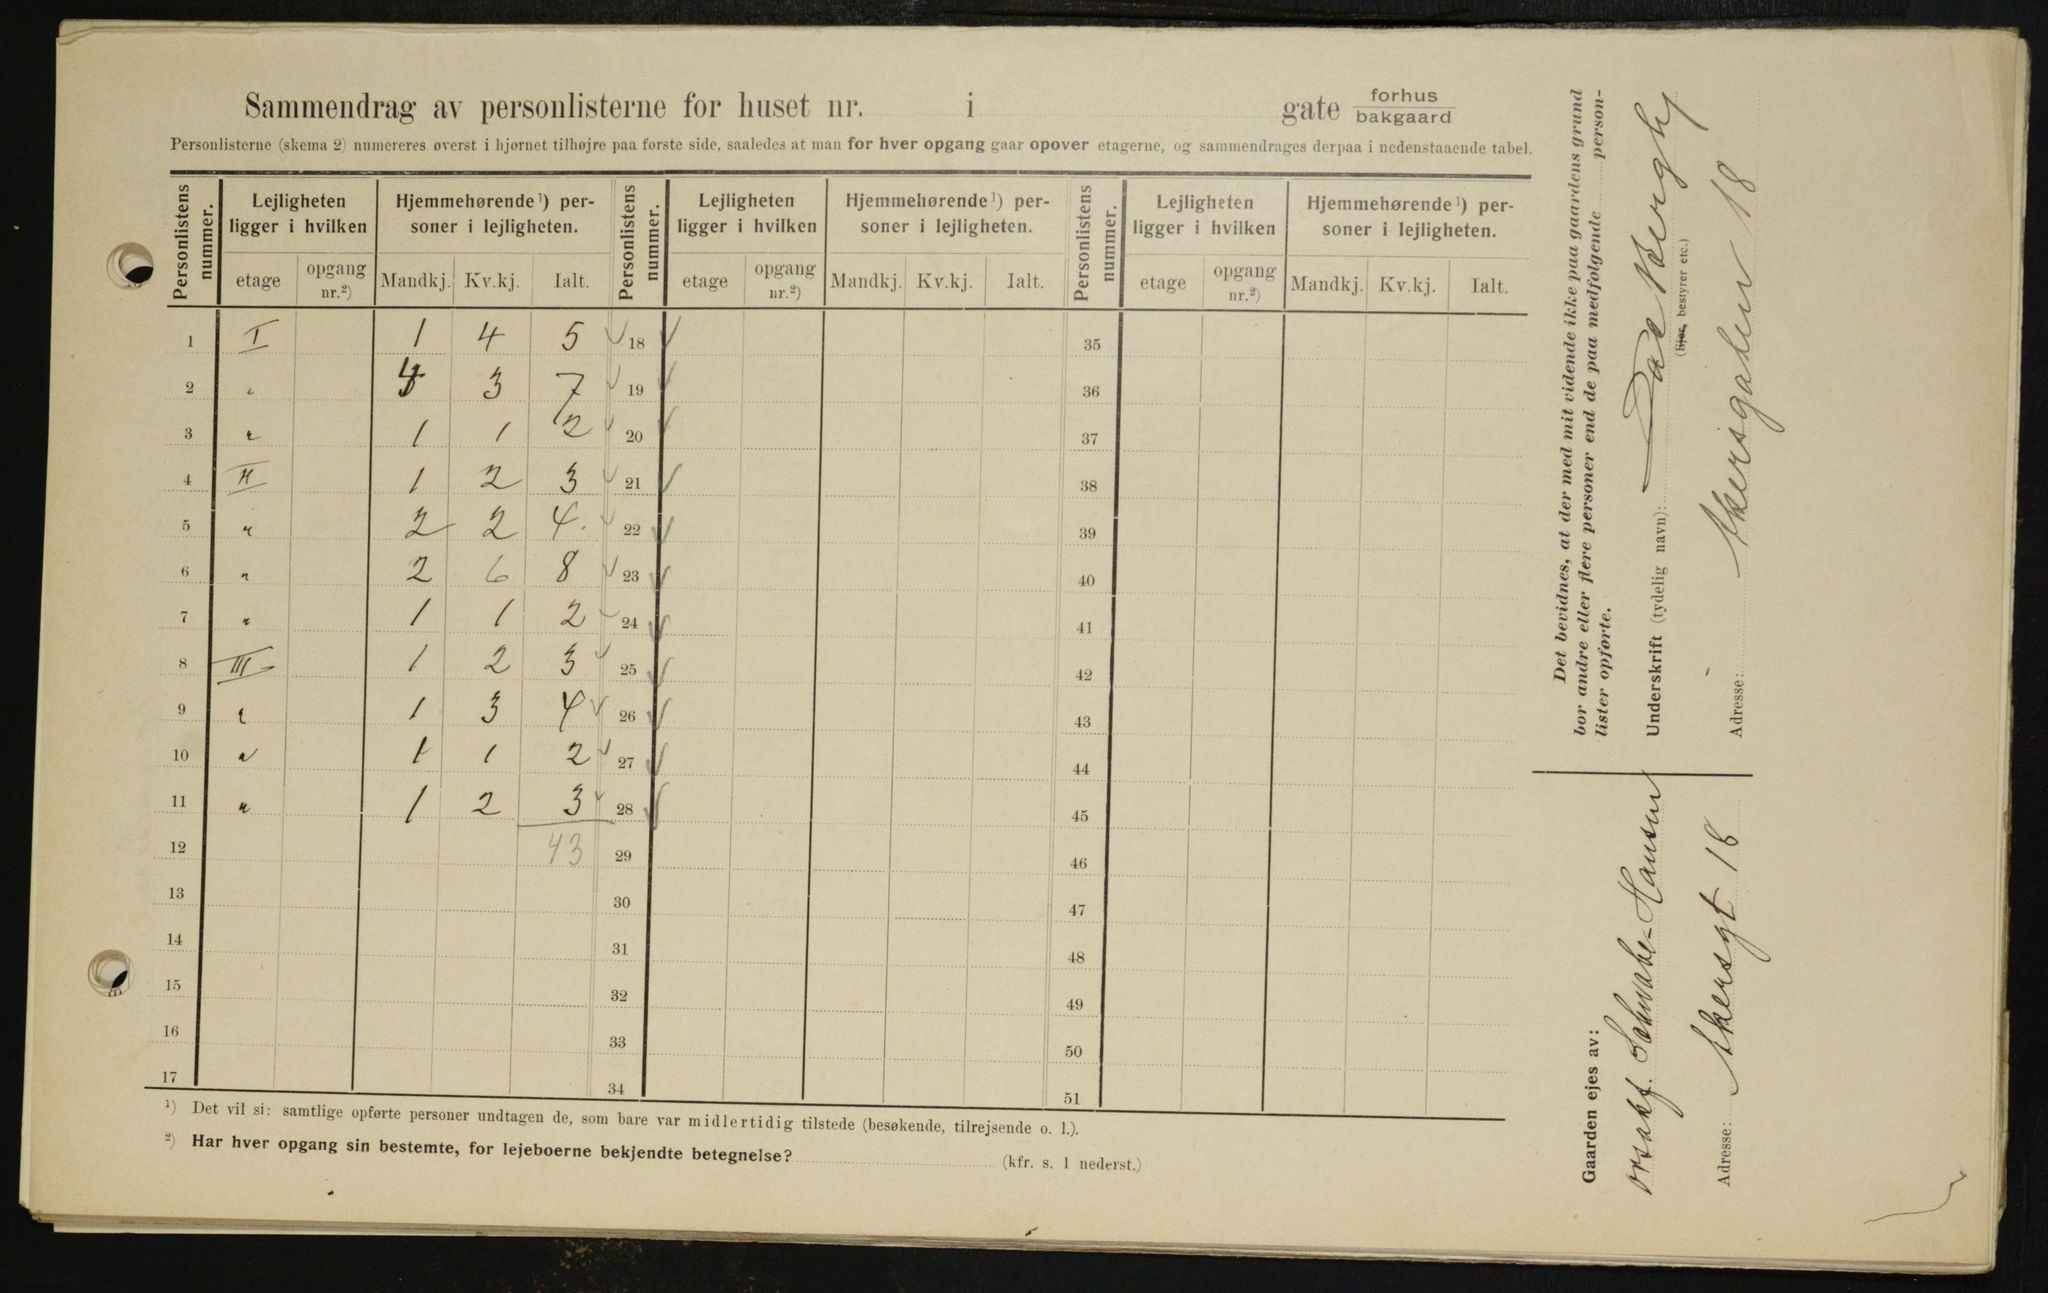 Sammendrag av personlisterne for huset nr. i gate forhus
bakgaard
Personlisterne (skema 2) numereres øverst i hjørnet tilhøjre paa første side, saaledes at man for hver opgang gaar opover etagerne, og sammendrages derpaa i nedenstaaende tabel.
Personlistens nummer. Lejligheten ligger i hvilken Hjemmehørende ¹) personer i lejligheten. Personlistens nummer. Lejligheten ligger i hvilken Hjemmehørende ¹) personer i lejligheten. Personlistens nummer. Lejligheten ligger i hvilken Hjemmehørende ¹) personer i lejligheten.
etage opgang nr.²) Mandkj. Kv.kj. Ialt. etage opgang nr.²) Mandkj. Kv.kj. Ialt. etage opgang nr.²) Mandkj. Kv.kj. Ialt.
1 I 1 4 5 ✓ 18 ✓ 35
2 " 4 3 7 ✓ 19 ✓ 36
3 " 1 1 2 ✓ 20 ✓ 37
4 II 1 2 3 ✓ 21 ✓ 38
5 " 2 2 4 ✓ 22 ✓ 39
6 " 2 6 8 ✓ 23 ✓ 40
7 " 1 1 2 ✓ 24 ✓ 41
8 III 1 2 3 ✓ 25 ✓ 42
9 " 1 3 4 ✓ 26 ✓ 43
10 " 1 1 2 ✓ 27 ✓ 44
11 " 1 2 3 ✓ 28 ✓ 45
12 43 29 46
13 30 47
14 31 48
15 32 49
16 33 50
17 34 51
¹) Det vil si: samtlige opførte personer undtagen de, som bare var midlertidig tilstede (besøkende, tilrejsende o. l.).
²) Har hver opgang sin bestemte, for lejeboerne bekjendte betegnelse? (kfr. s. 1 nederst.)
Det bevidnes, at der med mit vidende ikke paa gaardens grund
bor andre eller flere personer end de paa medfølgende person-
lister opførte.
Underskrift (tydelig navn):
(Ejer, bestyrer etc.)
Adresse: Akersgaten 18
Gaarden ejes av:
Schwabe-Hansen
Adresse: Akersgt 18